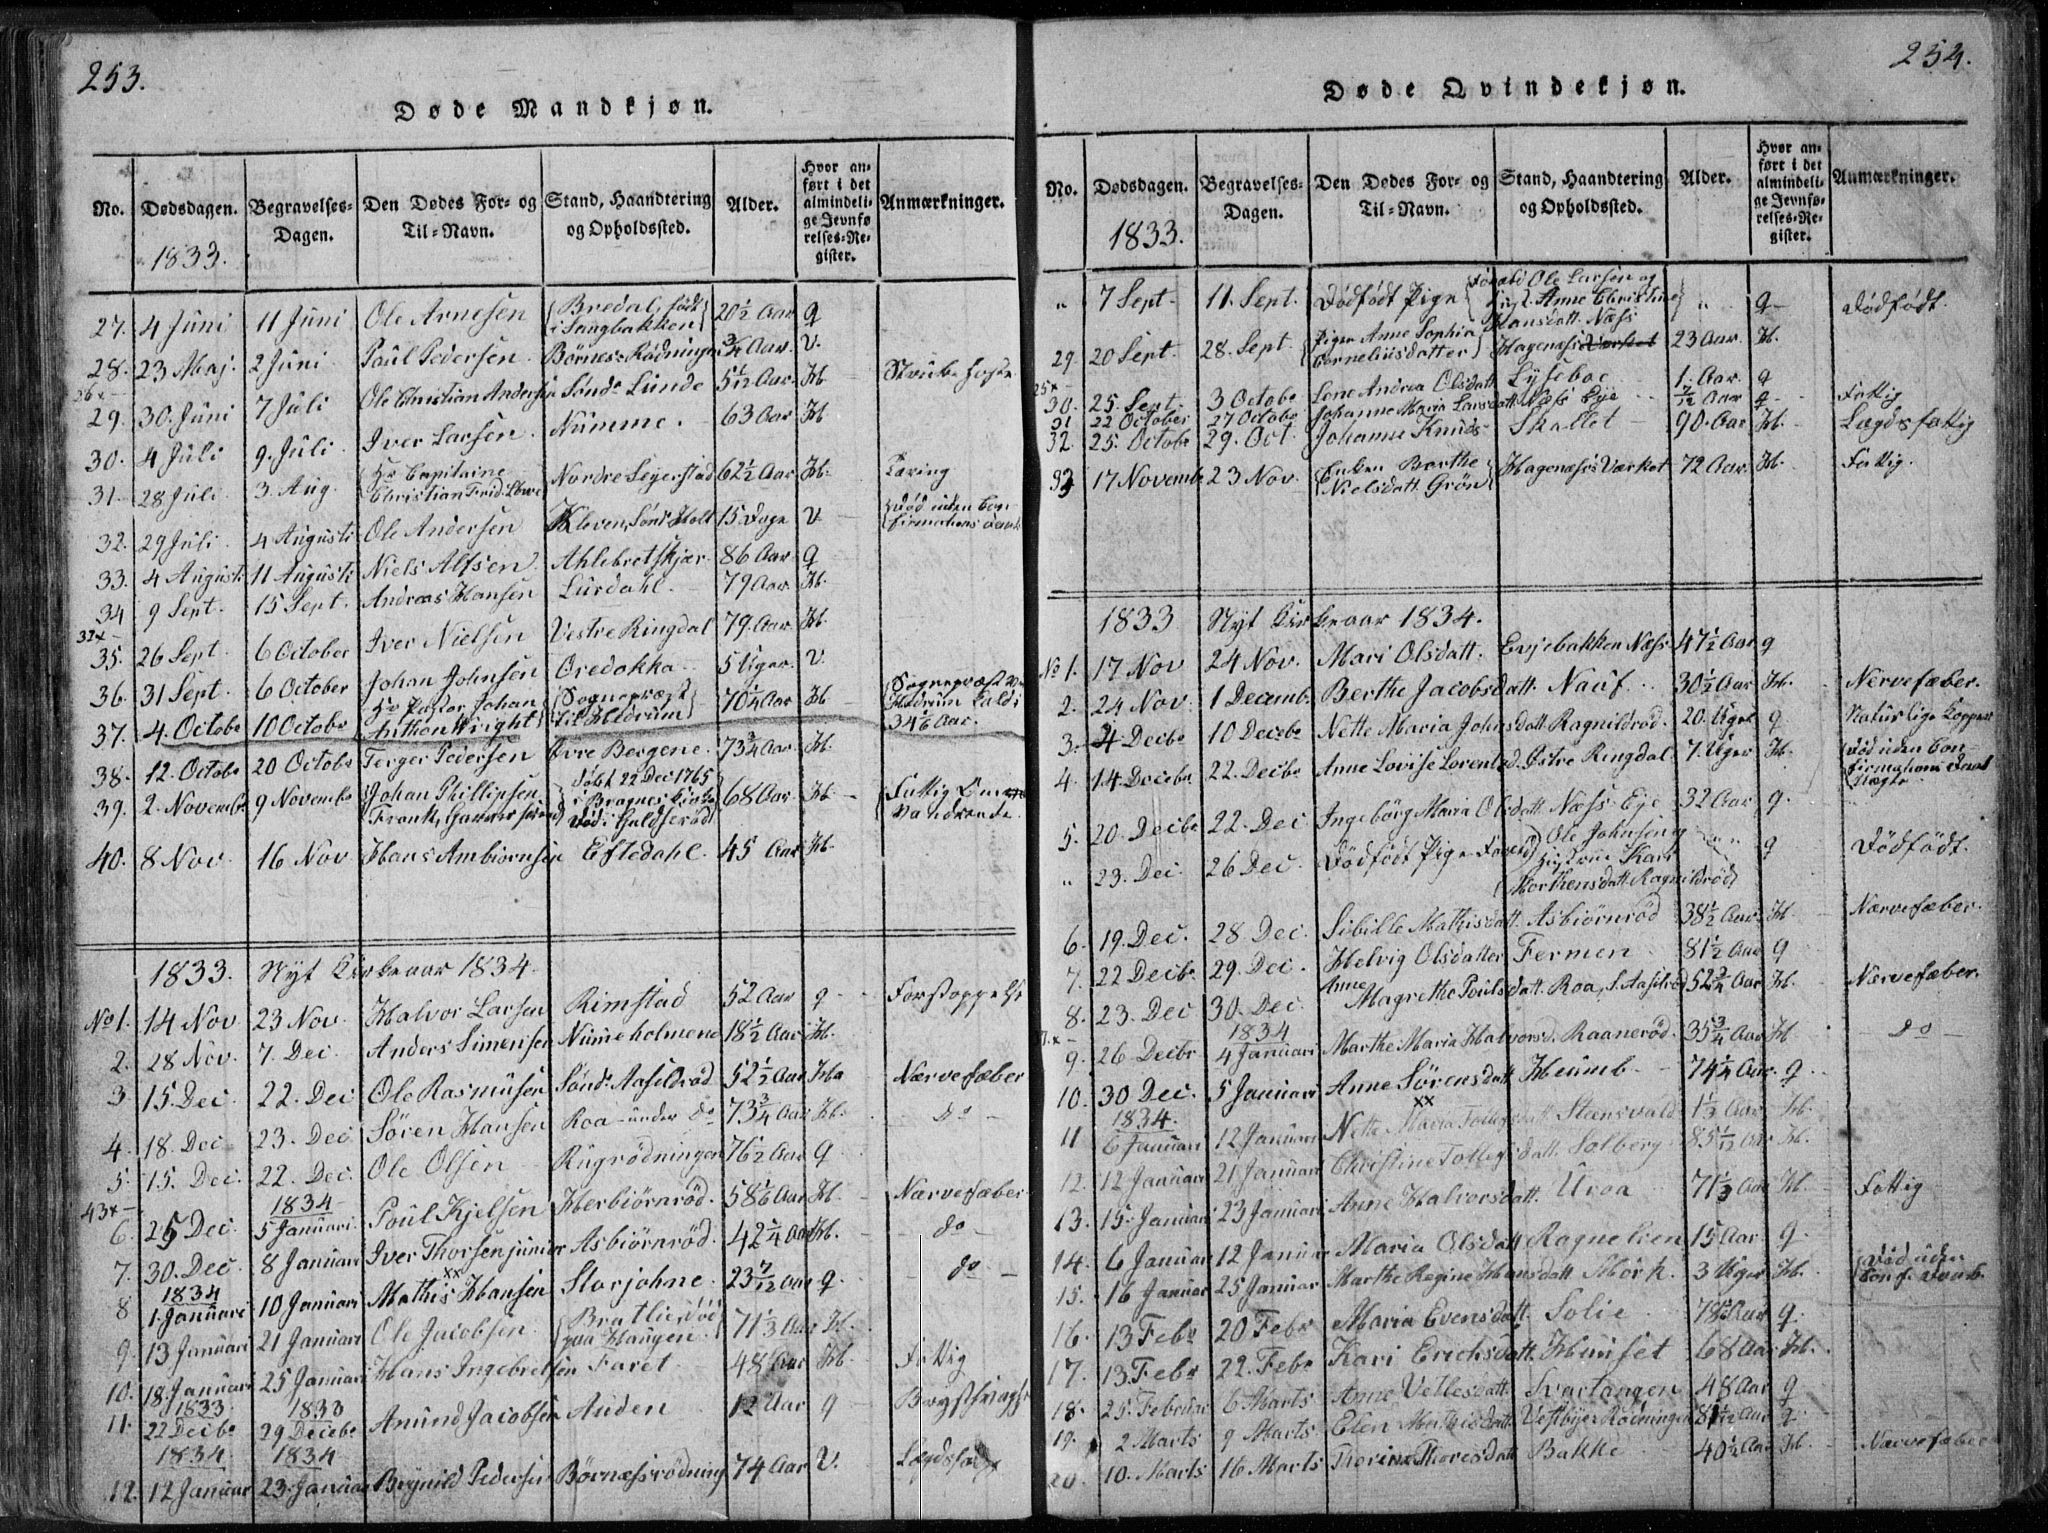 253.
Døde Mandkjøn.
No. Dødsdagen. Begravelses-Dagen. Den Dødes For- og Til-Navn. Stand, Haandtering og Opholdssted. Alder. Hvor anført i det almindelige Jevnførelses-Register. Anmærkninger.
1833.
27. 4 Juni 11 Juni Ole Arnesen Bredal, født i Langbakken 20½ Aar g
28. 23 Maj. 2 Juni Paul Pedersen. Børnes-Rødningen ¾ Aar. V.
26x
29. 30. Juni 7 Juli Ole Christian Andersen Sønd. Lunde 5 1/12 Aar. H. Strubehoste
30. 4 Juli 9. Juli Iver Larsen. Numme. 63 Aar H
31. 28 Juli 3. Aug. Hr Capitaine Christian Frid. Løwe Nordre Sejerstad 62½ Aar H. Tæring
32. 29 Juli. 4 Augusti Ole Andersen Kleven, Sønd. Holt 15 Dage V. Død uden Confirmations Daab
33. 4 Augusti 11 Augusti Niels Alfsen. Ahlebretskjær. 86 Aar. g
34 9 Sept. 15 Sept. Andreas Hansen Lurdahl. 79 Aar. H.
32x
35. 26 Sept. 6 October Iver Nielsen Vestre Ringdal 79. Aar H.
36. 31 Sept. 6 October Johan Johnsen Oredokka. 5 Uger. V.
37. 4. Octobr 10 Octobr Hr Pastor Johan Anthon Wright Sognepræst til Hedrum 70¼ Aar H Sognepræst v. Hedrum Kald i 34 1/6 Aar.
38. 12. Octobr 20 Octobr Terger Pedersen Øvre Bergene. 73¾ Aar. H.
39. 2. Novembr 9 Novembr Johan Phillipsen Frank, Døbt 22 Dec 1765 i Bragnes Kirke Død i Guldserød 68 Aar H Fattig
40. 8 Nov. 16 Nov Hans Ambiørnsen Eftedahl. 45 Aar H.
1833. Nyt Kirkeaar 1834.
No 1. 14 Nov 23 Nov. Halvor Larsen Rimstad 52 Aar g Forstoppelse
2. 28 Nov. 7. Dec. Anders Simensen Numeholmene 18½ Aar H.
3 15. Dec. 22. Dec Ole Rasmusen Sønd. Aasildrød. 52½ Aar Ha Nærvefæber
4. 18. Dec 23. Dec Søren Hansen Roa under do 73¾ Aar H. do
5. 15. Dec. 22. Dec. Ole Olsen Rugrødningen 76½ Aar g
43x 1834
6. 25 Dec. 5 Januari. Poul Kjelsen Herbiørnrød. 58 1/6 Aar H. Nærvefæber
7. 30. Dec. 8 Januari Iver Thorsen junior Asbiørnrød. 42¼ Aar H. do
1834 xx
8 1. Januari 10 Januari Mathis Hansen Storjohne. 23 7/12 Aar g. do
9. 13 Januari 21 Januari Ole Jacobsen. Bratlie, død paa Haugen. 71⅓ Aar H.
10. 18. Januari 25 Januari Hans Ingebretsen Faret. 48 Aar H. Fattig
1833 1833
11. 22 Decbr 29 Decebr Amund Jacobsen Auden 12 Aar g
1834. 1834
12. 12 Januar 23. Januar Brynild Pedersen Børnæssrødning 74 Aar V. Lægdsfattig
254.
Døde Qvindekjøn.
No. Dødsdagen. Begravelses-Dagen. Den Dødes For- og Til-Navn. Stand, Haandtering og Opholdssted. Alder. Hvor anført i det almindelige Jevnførelses-Register. Anmærkninger.
1833.
" 7 Sept. 11. Sept. Dödfödt Pige Ole Larsen og Anne Christine Hansdatt. Næss " g Dödfödt
29 20 Sept. 28. Sept Piger Anne Sophia Corneliusdatter Hagenæss Værket 23 Aar. H.
25x
30. 25. Sept. 3 Octobr Lene Andrea Olsdatt Lyseboe 1. Aar. g
31 22 October 27 Octobr Johanne Maria Larsdatt Næss Eje 7/12 Aar g Fattig
32. 25. Octobr 29. Oct. Johanne Knuds- Skallet 90. Aar H. Lægdsfattig
33 17 Novembr 23 Nov. Enken Berthe Nielsdatt. Grön Hagenæss Værket 72 Aar. H. Fattig.
1833 Nyt Kirkeaar 1834.
No 1. 17 Nov 24 Nov. Mari Olsdatt. Evjebakken Næss 47½ Aar g
2. 24 Nov. 1 Decemb. Berthe Jacobsdatt. Nauf. 30½ Aar H. Nervefæber.
3. 4 Decbr 10 Decebr Nette Maria Johnsdatt Ragnildrød. 20. Uger g Naturlige Kopper
4. 14 Decebr 22. Decbr Anne Lovise Lorentsd. Østre Ringdal 7. Uger H. Død uden Confirmations Daab
5. 20. Decbr 22. Dec Ingebörg Maria Olsdatt Næss Eje 32 Aar g.
" 23. Dec. 26 Dec. Dödfödt Pige Ole Johnsen og Kari Morthensdatt. Ragnildrød " g Dödfödt.
6. 19. Dec. 28 Dec. Sibille Mathisdatt. Asbiørnrød 38½ Aar H. Nærvefæber.
7. 22 Decbr 29. Dec. Helvig Olsdatter Fermen 81½ Aar g
8. 23. Dec 30. Dec. Anne Magrethe Poulsdatt. Roa, 52¾ Aar H. Nærvefæber.
1834
9. 26 Decbr 4 Januari Marthe Maria Halvorsd. Raanerød. 35¾ Aar H. do
10. 30 Dec. 5 Januari Anne Sörensdatt Heumb 74¼ Aar. g.
1834. xx
11 6 Januari 12 Januari Nette Maria Tollefsdatt Steensvald 1⅓ Aar H.
12. 12 Januari 21 Januari Christine Tollefsdatt. Solberg. 85 1/12 Aar H.
13. 15. Januari 23 Januari Anne Halvorsdatt. Uroa 71⅓ Aar H. Fattig
14. 6 Januar 12 Januar Maria Olsdatt Ragnelien 15 Aar. g.
15. 16 Januar 25 Januar Marthe Regine Hansdatt Mørk. 3 Uger H. Død uden Conf. Daab.
16. 13 Febr 20 Febr Maria Evensdatt. Solie. 78 Aar g.
17. 13. Febr 22. Febr Kari Erichsdatt. Hunset 68 Aar H.
18. 25. Februar 6 Marts Anne Vetlesdatt. Svartangen 48 Aar g
19. 2 Marts 9 Marts Elen Mathisdatt. Vestbyes Rødningen Aar g.
20 10. Marts 16 Marts Thorine Thoresdatt Bakke 40½ Aar H. Nærvefæber